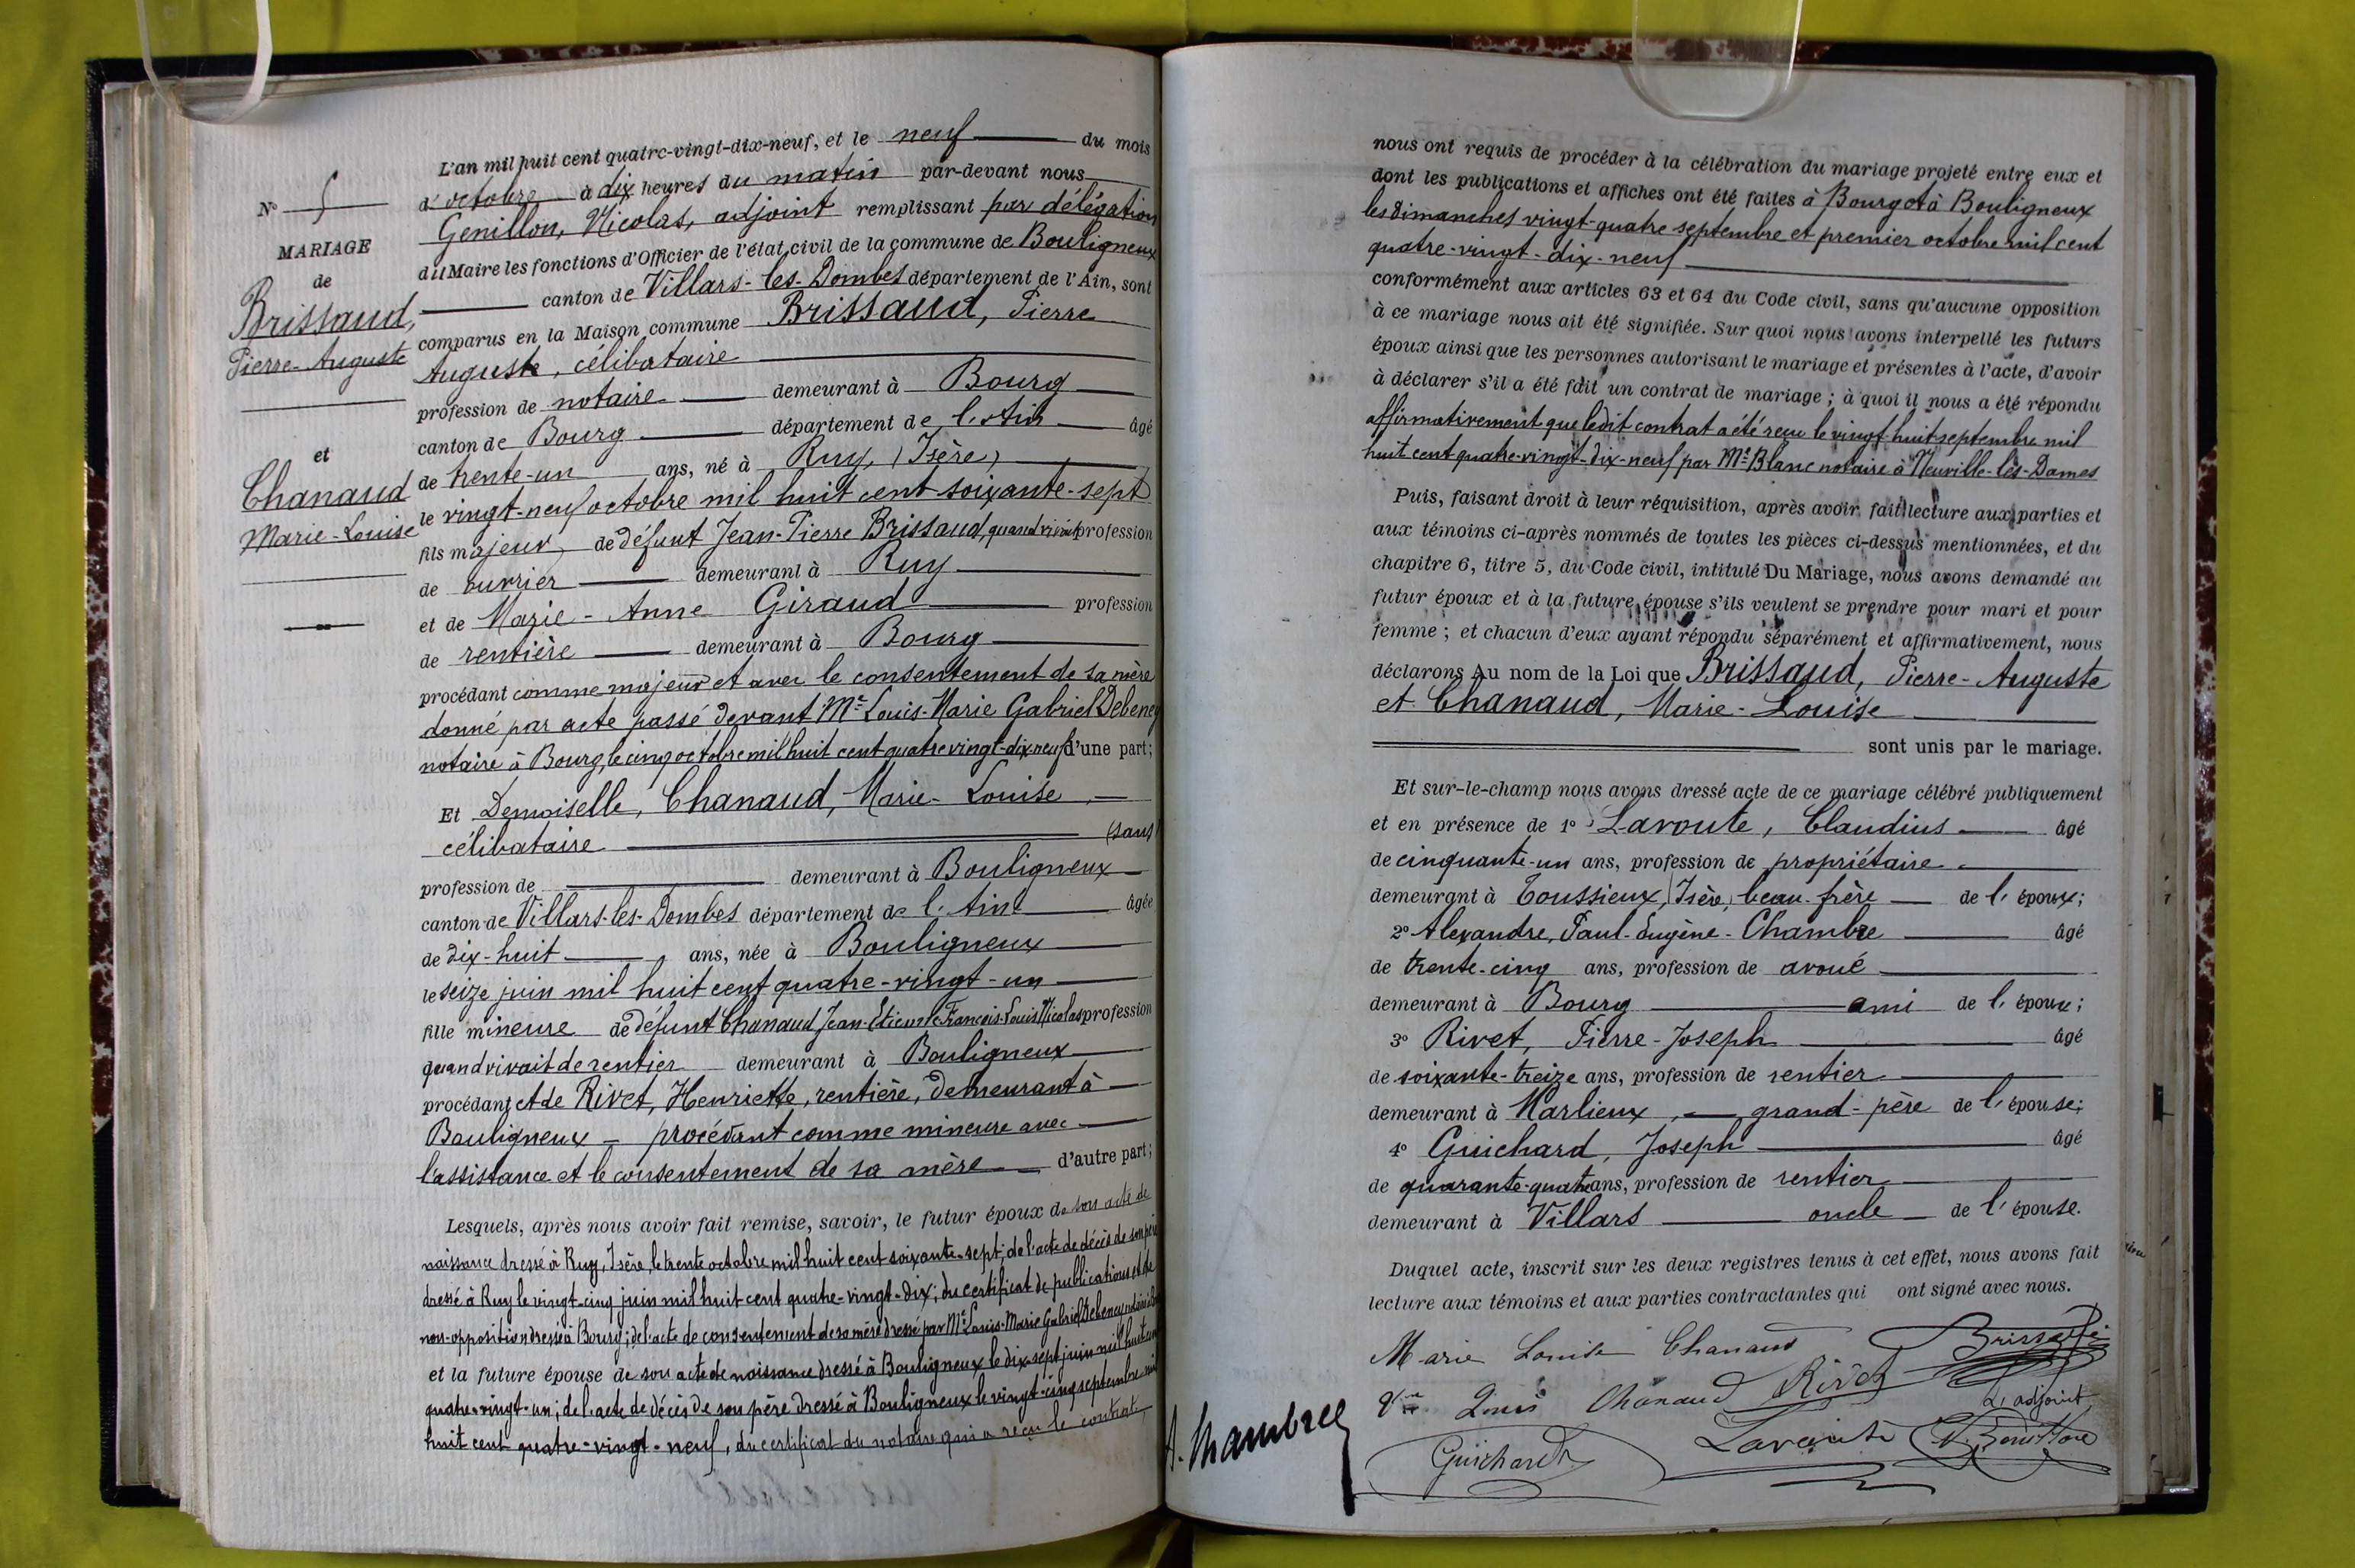 N° 5
MARIAGE
de
Brissaud,
Pierre-Auguste
et
Chanaud
Marie-Louise
L'an mil huit cent quatre-vingt-dix-neuf, et le neuf du mois
d'octobre à dix heures du matin par-devant nous
Genillon, Nicolas, adjoint remplissant par délégation
du Maire les fonctions d'Officier de l'état civil de la commune de Bouligneux
canton de Villars-les-Dombes département de l'Ain, sont
comparus en la Maison commune Brissaud, Pierre
Auguste, célibataire
profession de notaire demeurant à Bourg
canton de Bourg département de l'Ain âgé
de trente-un ans, né à Ruy, (Isère)
le vingt-neuf octobre mil huit cent soixante-sept
fils majeur, de défunt Jean-Pierre Brissaud, quand vivait profession
de ouvrier demeurant à Ruy
et de Marie-Anne Giraud profession
de rentière demeurant à Bourg
procédant comme majeur et avec le consentement de sa mère
donné par acte passé devant Me Louis-Marie Gabriel Debeney
notaire à Bourg, le cinq octobre mil huit cent quatre vingt-dix-neuf d'une part;
Et Demoiselle, Chanaud, Marie-Louise,
célibataire (sans)
profession de demeurant à Bouligneux
canton de Villars-les-Dombes département de l'Ain âgée
de dix-huit ans, née à Bouligneux
le seize juin mil huit cent quatre-vingt-un
fille mineure de défunt Chanaud Jean-Etienne-François-Louis Nicolas profession
quand vivait de rentier demeurant à Bouligneux
procédant et de Rivet, Henriette, rentière, demeurant à
Bouligneux - procédant comme mineure avec
l'assistance et le consentement de sa mère d'autre part;
Lesquels, après nous avoir fait remise, savoir, le futur époux de son acte de
naissance dressé à Ruy, Isère, le trente octobre mil huit cent soixante-sept; de l'acte de décès de son père
dressé à Ruy le vingt-cinq juin mil huit cent quatre-vingt-dix; du certificat de publications et de
non-opposition dressé à Bourg; de l'acte de consentement de sa mère dressé par Me Louis-Marie Gabriel Debeney
et la future épouse de son acte de naissance dressé à Bouligneux le dix-sept juin mil huit cent
quatre-vingt-un; de l'acte de décès de son père dressé à Bouligneux le vingt-cinq septembre mil
huit cent quatre-vingt-neuf, du certificat du notaire qui a reçu le contrat,
nous ont requis de procéder à la célébration du mariage projeté entre eux et
dont les publications et affiches ont été faites à Bourg et à Bouligneux
les dimanches vingt-quatre septembre et premier octobre mil cent
quatre-vingt-dix-neuf
conformément aux articles 63 et 64 du Code civil, sans qu'aucune opposition
à ce mariage nous ait été signifiée. Sur quoi nous avons interpellé les futurs
époux ainsi que les personnes autorisant le mariage et présentes à l'acte, d'avoir
à déclarer s'il a été fait un contrat de mariage; à quoi il nous a été répondu
affirmativement que ledit contrat a été reçu le vingt-huit septembre mil
huit cent quatre-vingt-dix-neuf par Me Blanc notaire à Neuville-les-Dames
Puis, faisant droit à leur réquisition, après avoir fait lecture aux parties et
aux témoins ci-après nommés de toutes les pièces ci-dessus mentionnées, et du
chapitre 6, titre 5, du Code civil, intitulé Du Mariage, nous avons demandé au
futur époux et à la future épouse s'ils veulent se prendre pour mari et pour
femme; et chacun d'eux ayant répondu séparément et affirmativement, nous
déclarons Au nom de la Loi que Brissaud, Pierre-Auguste
et Chanaud, Marie-Louise
sont unis par le mariage.
Et sur-le-champ nous avons dressé acte de ce mariage célébré publiquement
et en présence de 1° Lavoute, Claudius âgé
de cinquante-un ans, profession de propriétaire
demeurant à Toussieux, (Isère) beau-frère de l'époux;
2° Alexandre, Paul-Eugène-Chambre âgé
de trente-cinq ans, profession de avoué
demeurant à Bourg ami de l'époux;
3° Rivet, Pierre-Joseph âgé
de soixante-treize ans, profession de rentier
demeurant à Marlieux, grand-père de l'épouse;
4° Guichard, Joseph âgé
de quarante-quatre ans, profession de rentier
demeurant à Villars oncle de l'épouse.
Duquel acte, inscrit sur les deux registres tenus à cet effet, nous avons fait
lecture aux témoins et aux parties contractantes qui ont signé avec nous.
Marie Louise Chanaud Brissaud
Vve Louis Chanaud Rivet
L'adjoint
A. Chambre Guichard Lavoute N. Genillon